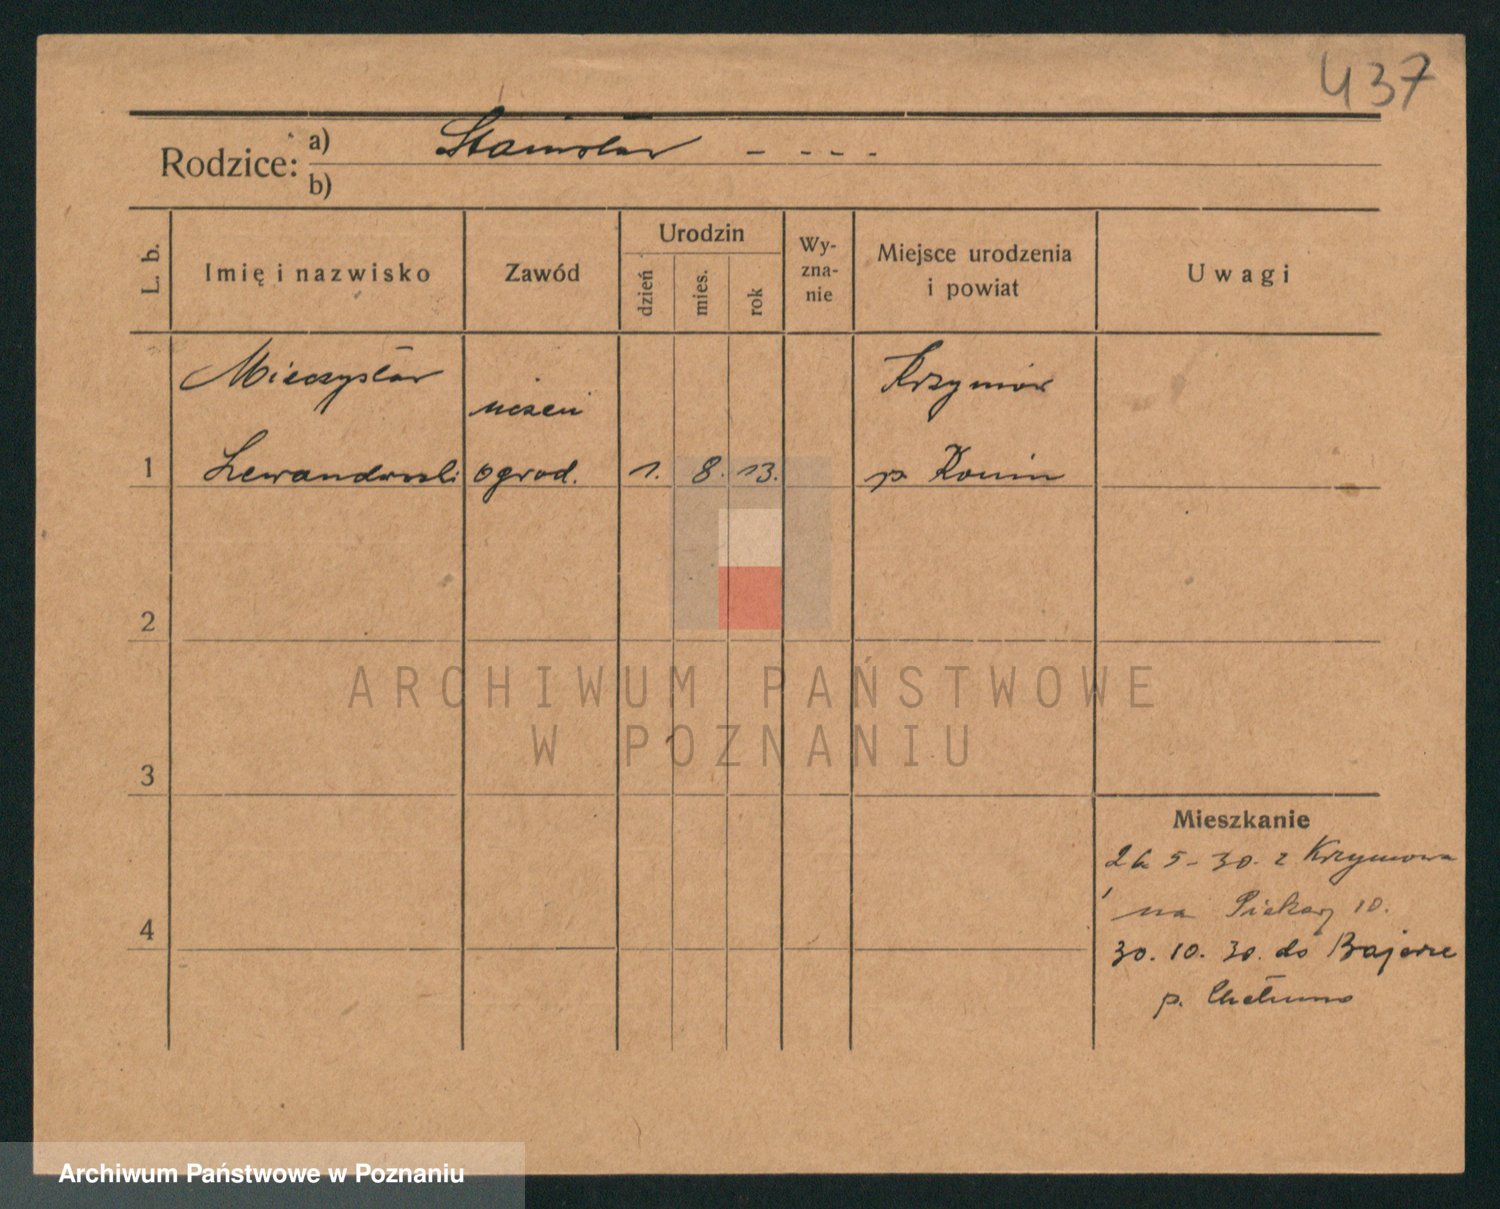 437
Rodzice:
a) Stanisław - - - -
b)
L. b.
Imię i nazwisko
Zawód
Urodzin
dzień
mies.
rok
Wy-
zna-
nie
Miejsce urodzenia
i powiat
Uwagi
Mieczysław
uczeń
Krzymów
1 Lewandowski ogrod. 1. 8. 13. p. Konin
2
ARCHIWUM PAŃSTWOWE
W POZNANIU
3
Mieszkanie
26 5 - 30. z Krzymowa
na Piekary 10.
4
30. 10. 30. do Bajerze
p. Chełmno
Archiwum Państwowe w Poznaniu